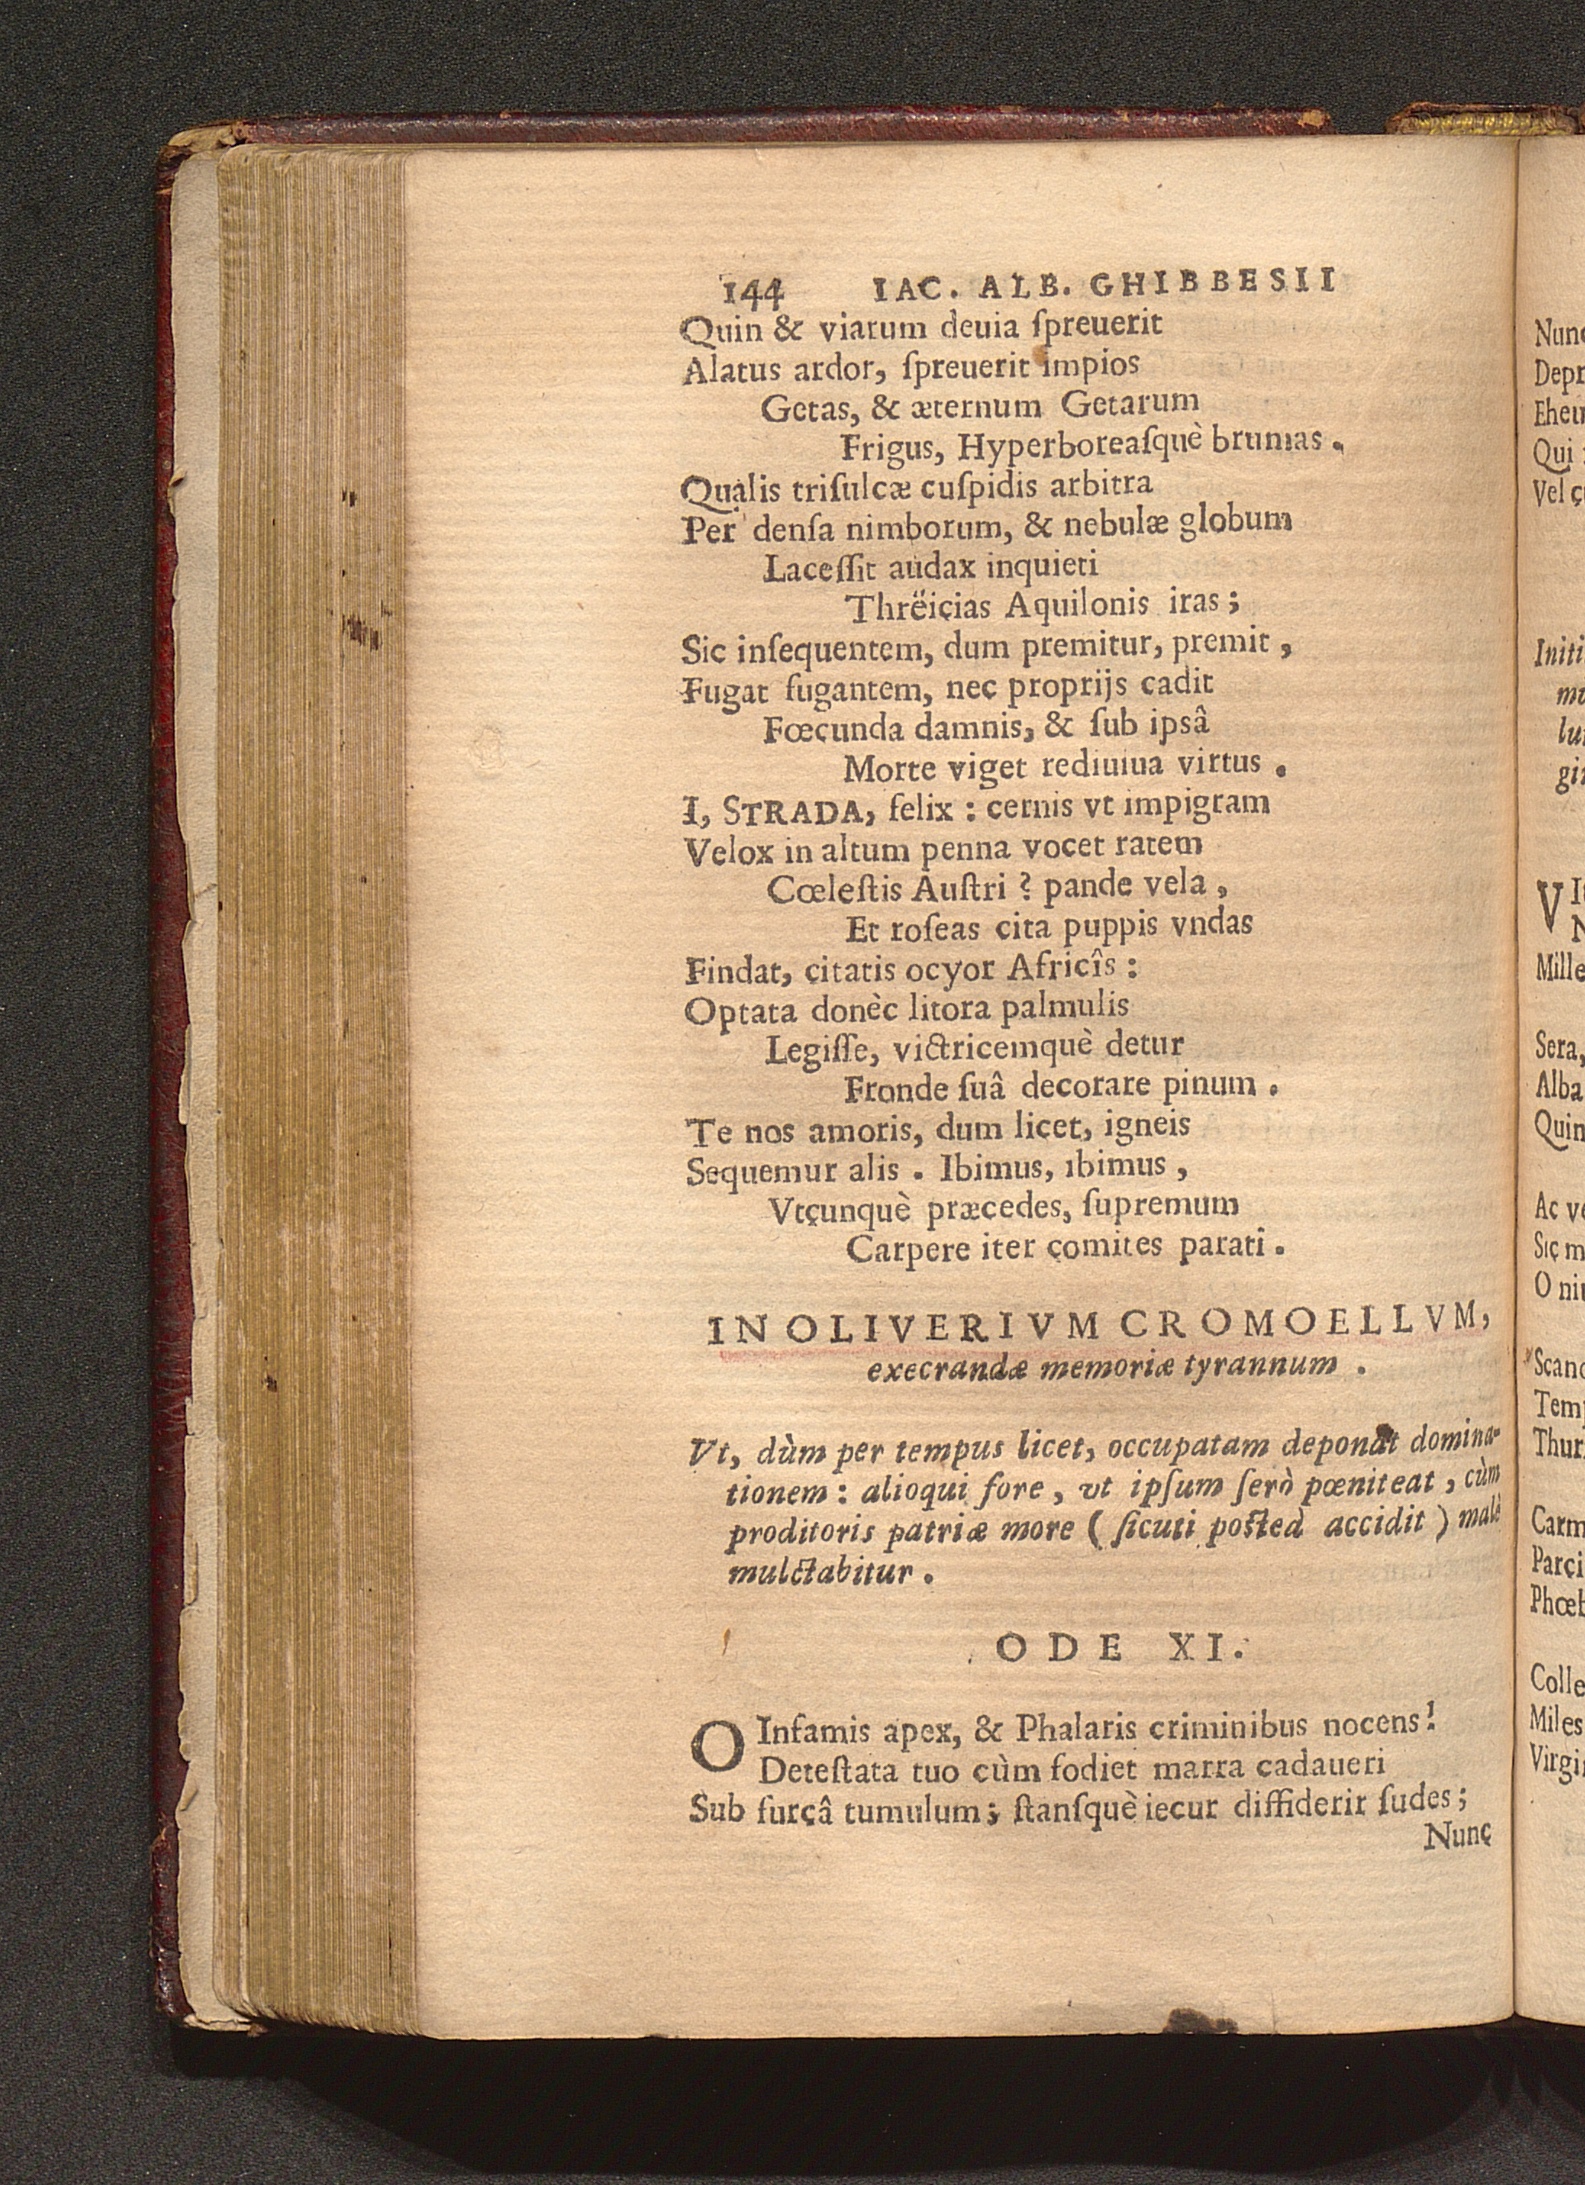 144 IAC. ALB. GHIBBESII
Quin & viarum deuia ſpreuerit
Alatus ardor, ſpreuerit impios
Getas, & æternum Getarum
Frigus, Hyperboreaſquè brumas.
Qualis triſulcæ cuſpidis arbitra
Per denſa nimborum, & nebulæ globum
Laceſſit audax inquieti
Thrëicias Aquilonis iras;
Sic inſequentem, dum premitur, premit,
Fugat fugantem, nec proprijs cadit
Fœcunda damnis, & ſub ipsâ
Morte viget rediuiua virtus.
I, STRADA, felix: cernis vt impigram
Velox in altum penna vocet ratem
Cœleſtis Auſtri? pande vela,
Et roſeas cita puppis vndas
Findat, citatis ocyor Africîs:
Optata donèc litora palmulis
Legiſſe, victricemquè detur
Fronde ſuâ decorare pinum.
Te nos amoris, dum licet, igneis
Sequemur alis. Ibimus, ibimus,
Vtcunquè præcedes, ſupremum
Carpere iter comites parati.
IN OLIVERIVM CROMOELLVM,
execrandæ memoriæ tyrannum.
Vt, dùm per tempus licet, occupatam deponat domina-
tionem: alioqui fore, vt ipſum ſerò pœniteat, cùm
proditoris patriæ more (ſicuti posteà accidit) malè
mulctabitur.
ODE XI.
O Infamis apex, & Phalaris criminibus nocens!
Deteſtata tuo cùm fodiet marra cadaueri
Sub furcâ tumulum; ſtanſquè iecur diffiderir ſudes;
Nunc
Nunc
Depr
Eheu
Qui
Vel
Initi
mu
lu
gi
V It
N
Mille
Sera,
Alba
Quin
Ac ve
Sic m
O ni
Scand
Tem
Thur
Carm
Parci
Phœb
Colle
Miles
Virgi